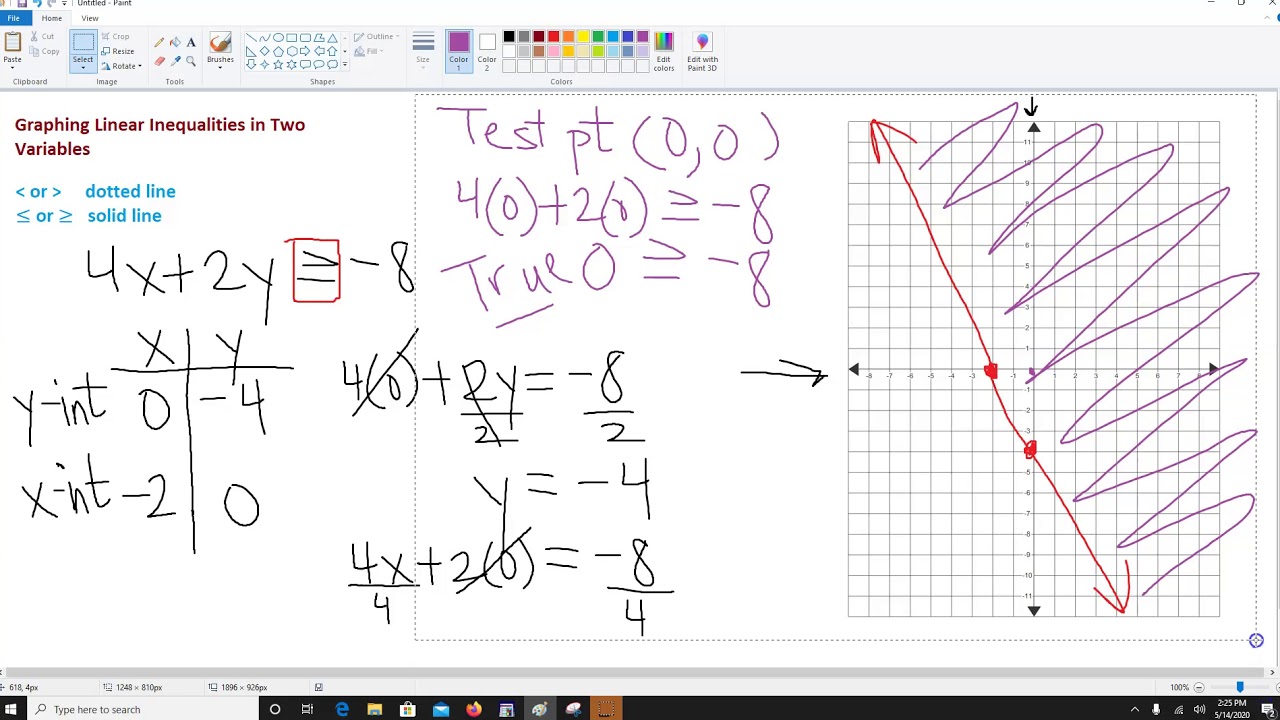 Untitled - Paint
File Home View
Paste
Cut
Copy
Clipboard
Select
Crop
Resize
Rotate
Image
Tools
Brushes
Outline
Fill
Shapes
Size
Color 1
Color 2
Edit colors
Edit with Paint 3D
Colors
Graphing Linear Inequalities in Two
Variables
< or > dotted line
≤ or ≥ solid line
4x+2y ≥ -8
x y
y-int 0 -4
x-int -2 0
Test pt (0,0)
4(0)+2(0) ≥ -8
True 0 ≥ -8
4(0) + 2y = -8
2 2
y = -4
4x + 2(0) = -8
4 4
618, 4px
1248 × 810px
1896 × 926px
100%
Type here to search
2:25 PM
5/14/2020